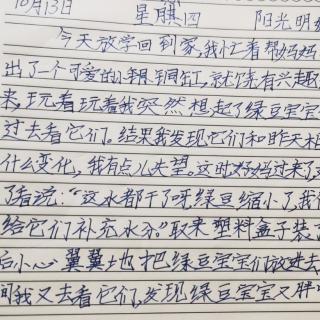 10月13日 星期四 阳光明
今天放学回到家,我忙着帮妈妈
出了一个可爱的小铜缸,就饶有兴趣
来,玩着玩着我突然想起了绿豆宝宝
过去看它们。结果我发现它们和昨天相
什么变化,我有点儿失望。这时好妈过来了
了看说:“这水都干了呀,绿豆缩小了,我
给它们补充水分。”取来塑料盒子装
后小心翼翼地把绿豆宝宝们放进去
间我又去看它们,发现绿豆宝宝又胖